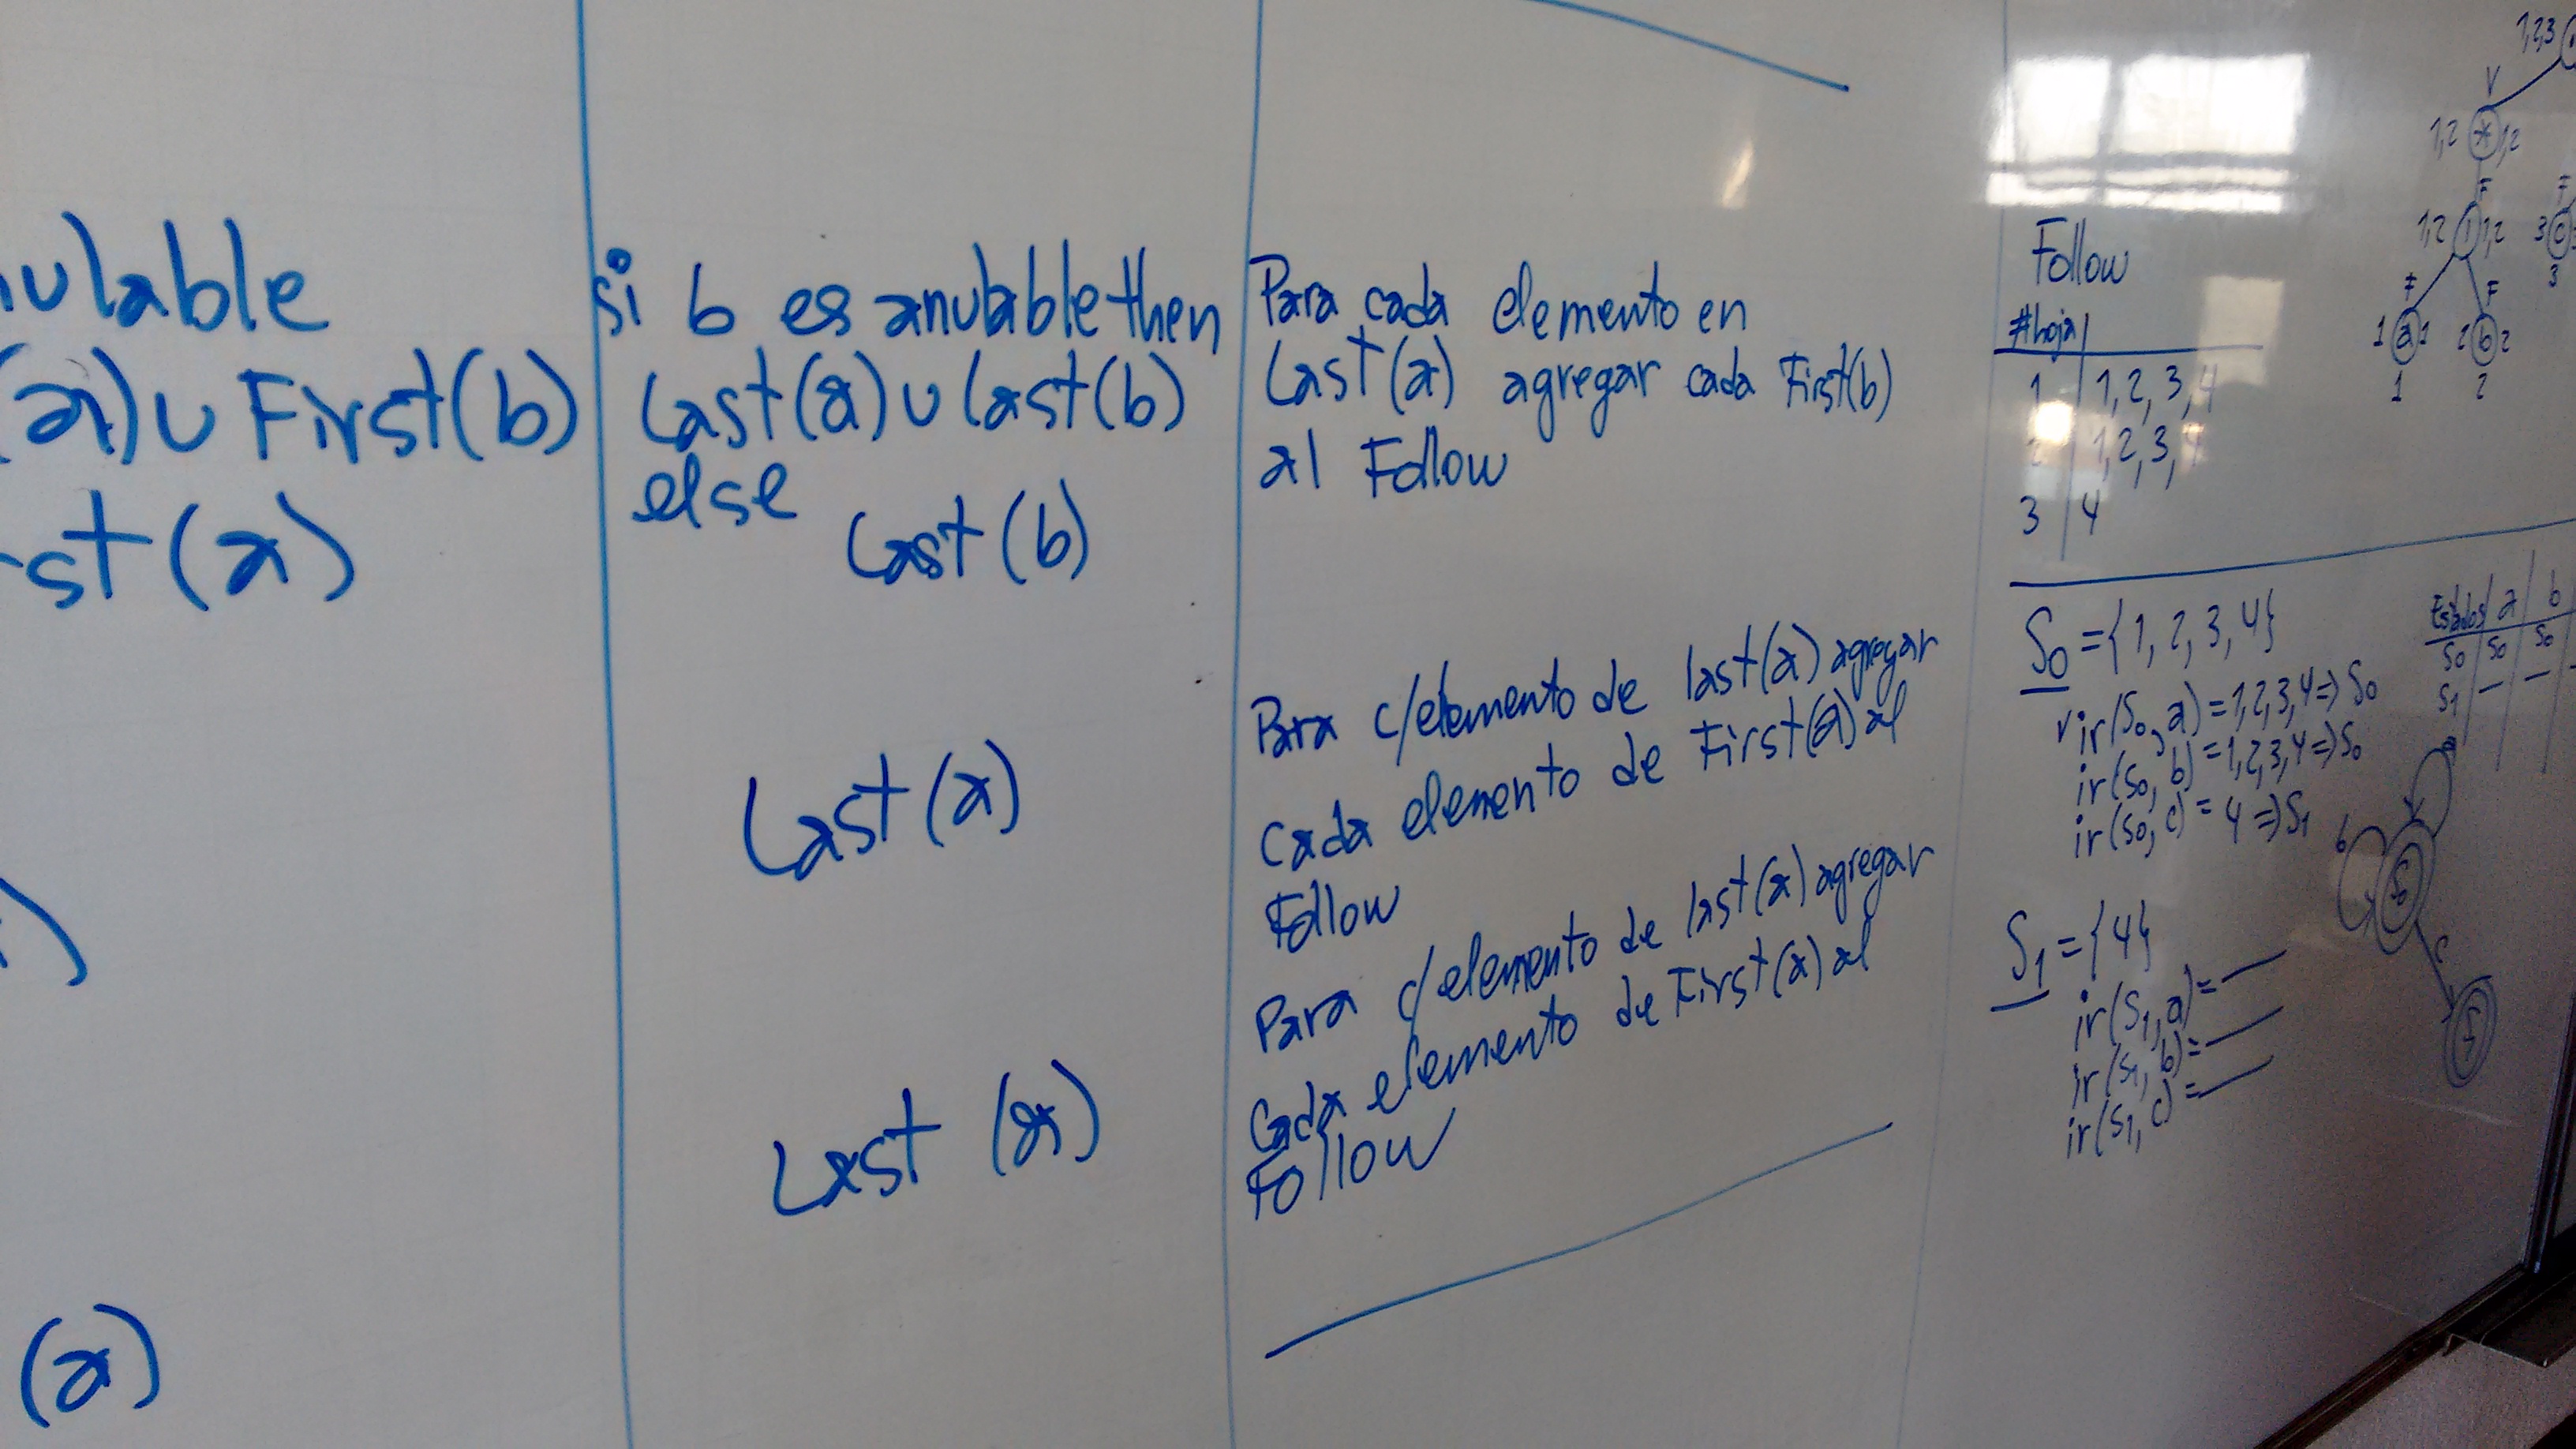 nulable
(a) ∪ First(b)
st(a)
)
(a)
si b es anulable then
Last(a) ∪ Last(b)
else
Last(b)
Last(a)
Last (a)
Para cada elemento en
Last(a) agregar cada First(b)
al Follow
Para c/elemento de last(a) agregar
Cada elemento de First(a) al
Follow
Para c/elemento de last(a) agregar
Cada elemento de First(a) al
Follow
Follow
#hoja
1 1, 2, 3, 4
2 1, 2, 3, 4
3 4
S0 = {1, 2, 3, 4}
ir(S0, a) = 1,2,3,4 => S0
ir(S0, b) = 1,2,3,4 => S0
ir(S0, c) = 4 => S1
S1 = {4}
ir(S1, a) = —
ir(S1, b) = —
ir(S1, c) = —
1,2,3
V
1,2 * 1,2
F
1,2 | 1,2
F
3 c
3
F F
1 a 1 2 b 2
1 2
Estados a b
S0 S0 S0
S1 — —
b
S0
c
S1